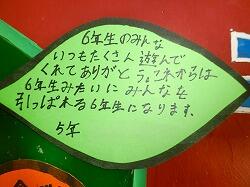 6年生のみんな
いつもたくさん遊んで
くれてありがとう。これからは
6年生みたいにみんなを
引っぱれる6年生になります。
5年